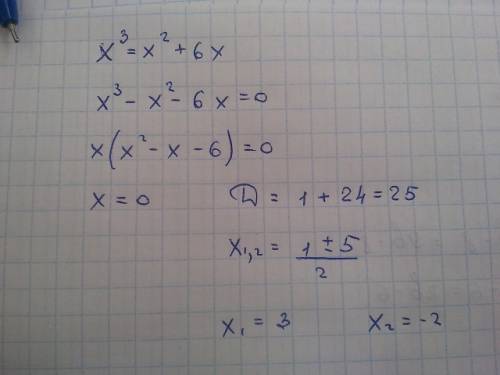 x³ = x² + 6x
x³ - x² - 6x = 0
x(x² - x - 6) = 0
x = 0 D = 1 + 24 = 25
x₁,₂ = (1 ± 5)/2
x₁ = 3 x₂ = -2